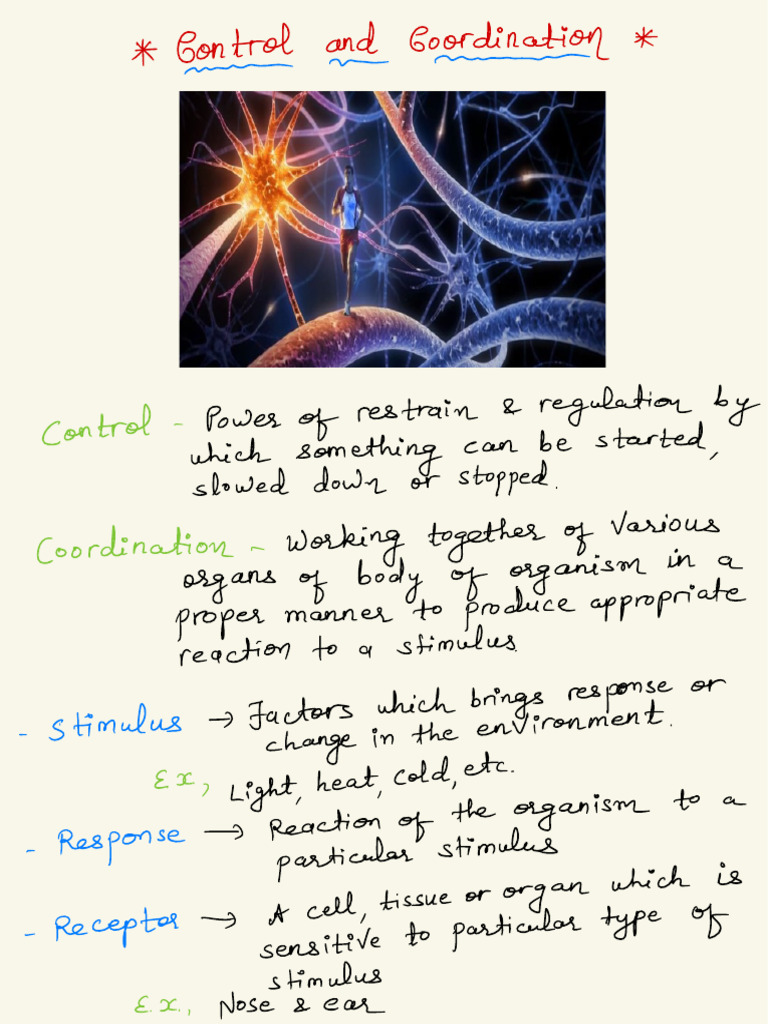 * Control and Coordination *
Control - Power of restrain & regulation by
which something can be started,
slowed down or stopped.
Coordination - Working together of various
organs of body of organism in a
proper manner to produce appropriate
reaction to a stimulus.
- Stimulus → Factors which brings response or
change in the environment.
Ex, Light, heat, cold, etc.
- Response → Reaction of the organism to a
particular stimulus
- Receptor → A cell, tissue or organ which is
sensitive to particular type of
stimulus
E.x., Nose & ear